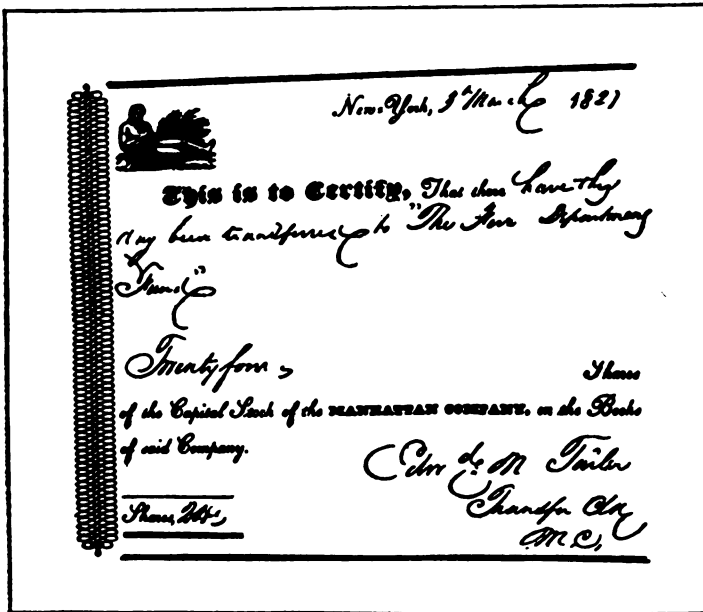 New-York, 9th March 1821
This is to Certify, That there have this
day been transferred to "The Fire Department
Fund"
Twenty four Shares
of the Capital Stock of the MANHATTAN COMPANY, on the Books
of said Company.
Edw de M Tailer
Shares, 24
Transfer Clk
M C,